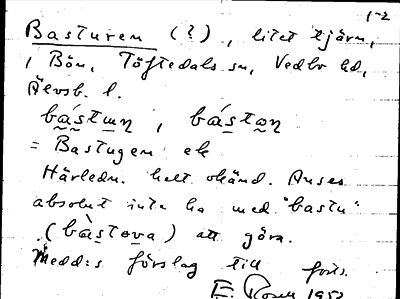 1-2
Basturen (?), litet tjärn,
i Bön, Töftedals sn, Vedbo hd,
Älvsb. l.
bástɯn̥, bástən
= Bastugen ek
Härledn. helt okänd. Anses
absolut inte ha med "bastu"
(bàstova) att göra.
Medd:s förslag till forts.
E. Rosell 1952